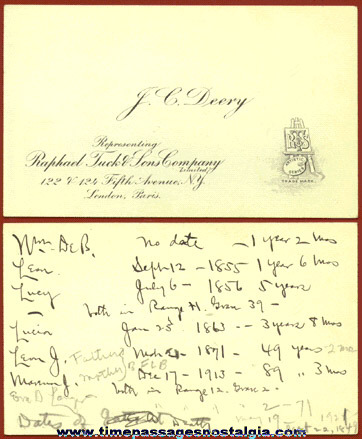 J. C. Deery
Representing
Raphael Tuck & Sons Company
Limited
122 & 124 Fifth Avenue, N.Y.
London, Paris.
ARTISTIC SERIES
TRADE MARK
Wm. De B. no date – 1 year 2 mos
Leon Sept 12 – 1855 1 year 6 mos
Lucy July 6 – 1856 5 years
both in Range H. Grave 39 –
Lucia Jan 23 1863 – 3 years 8 mos
Leon J. Father 1871 – 49 years 2 mos
mother
Dec 17 – 1913 – 89 " 3 mos
both in Range 12. Grave 2.
Dates of
www.timepassagesnostalgia.com